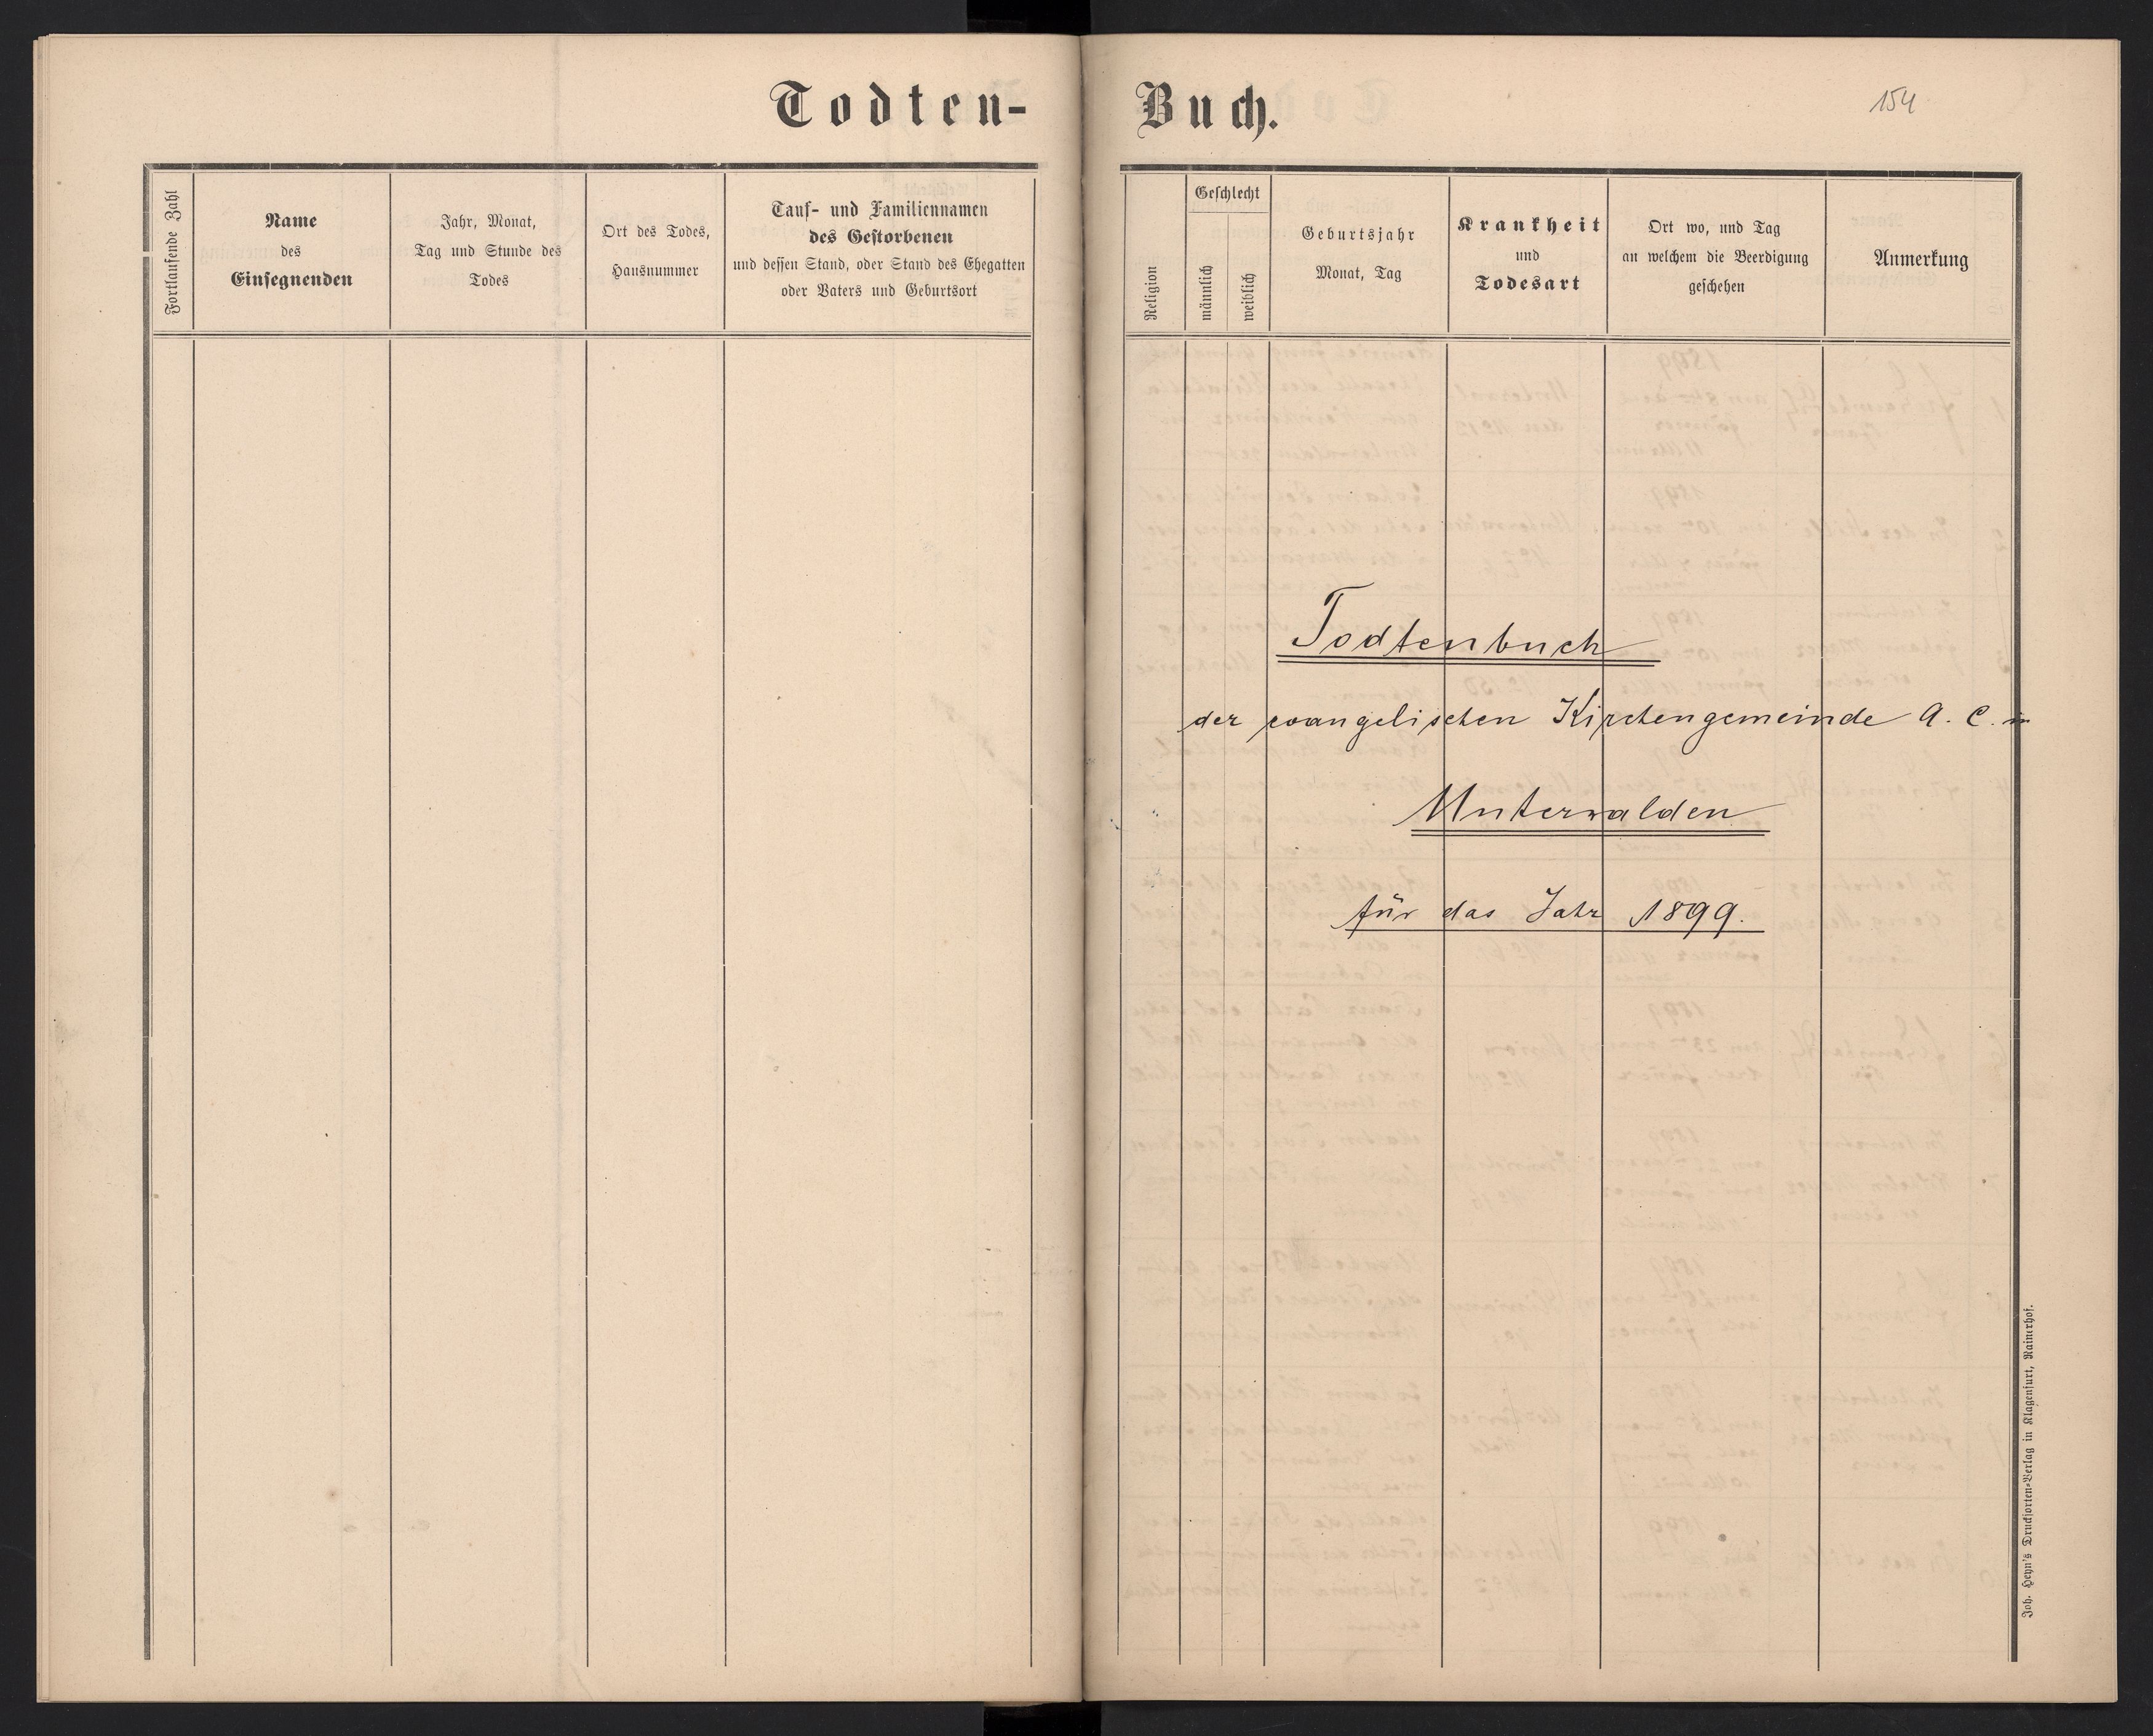 Todten-
Fortlaufende Zahl
Name
des
Einsegnenden
Jahr, Monat,
Tag und Stunde des
Todes
Ort des Todes,
Hausnummer
Tauf- und Familiennamen
des Gestorbenen
und dessen Stand, oder Stand des Ehegatten
oder Vaters und Geburtsort
Buch.
154
Religion
Geschlecht
männlich
weiblich
Geburtsjahr
Monat, Tag
Krankheit
und
Todesart
Ort wo, und Tag
an welchem die Beerdigung
geschehen
Anmerkung
Todtenbuch
der evangelischen Kirchengemeinde A. C. in
Unterwalden
für das Jahr 1899.
Joh. Heyn's Drucksorten-Verlag in Klagenfurt, Rainerhof.